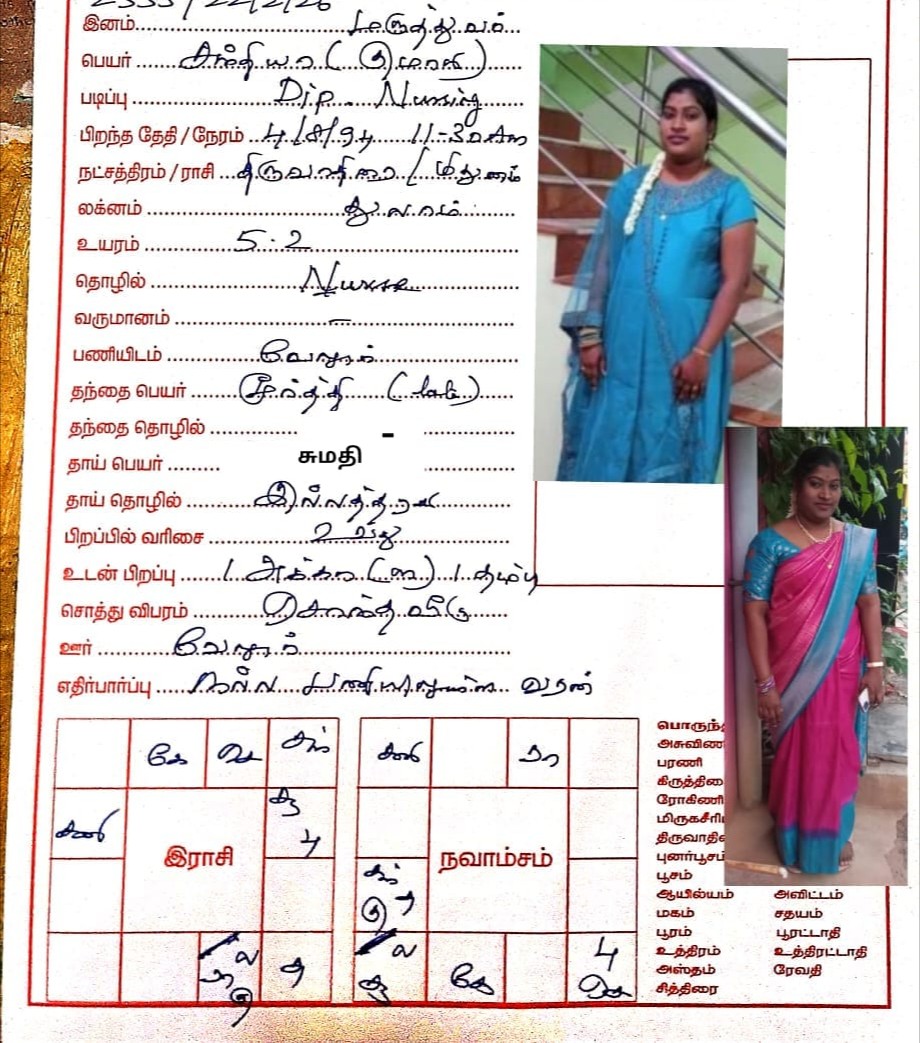 2333/22/2/26
இனம் மருத்துவம்
பெயர் சந்தியா (குமாரி)
படிப்பு Dip. Nursing
பிறந்த தேதி / நேரம் 4/8/94 11-30 am
நட்சத்திரம் / ராசி திருவாதிரை / மிதுனம்
லக்னம் துலாம்
உயரம் 5.2
தொழில் Nurse
வருமானம் –
பணியிடம் வேலூர்
தந்தை பெயர் மூர்த்தி (late)
தந்தை தொழில் -
தாய் பெயர் சுமதி
தாய் தொழில் இல்லத்தரசி
பிறப்பில் வரிசை 2 வது
உடன் பிறப்பு 1 அக்கா (ம) 1 தம்பி
சொத்து விபரம் சொந்த வீடு
ஊர் வேலூர்
எதிர்பார்ப்பு நல்ல பணியிலுள்ள வரன்
கே செ சந்
சனி சூ பு
இராசி
ல ரா கு சு
சனி ரா
நவாம்சம்
சந் சு கு
ல சூ கே பு செ
பொருந்
அசுவினி
பரணி
கிருத்திகை
ரோகிணி
மிருகசீரி
திருவாதிரை
புனர்பூசம்
பூசம்
ஆயில்யம் அவிட்டம்
மகம் சதயம்
பூரம் பூரட்டாதி
உத்திரம் உத்திரட்டாதி
அஸ்தம் ரேவதி
சித்திரை